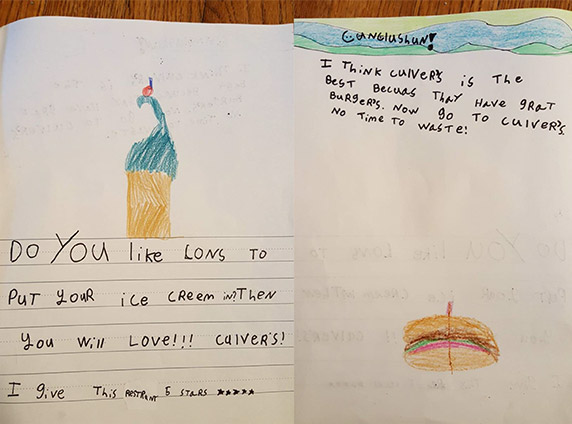 Do You like LoNs To
PuT your ice creem in? Then
you will Love!!! culver's!
I give This RESTRUNT 5 STARS ★★★★★
CANGLUSHUN!
I Think culver's is The
BesT Becuas ThaT Have graT
Burger's. Now go To culver's
No Time To waste!